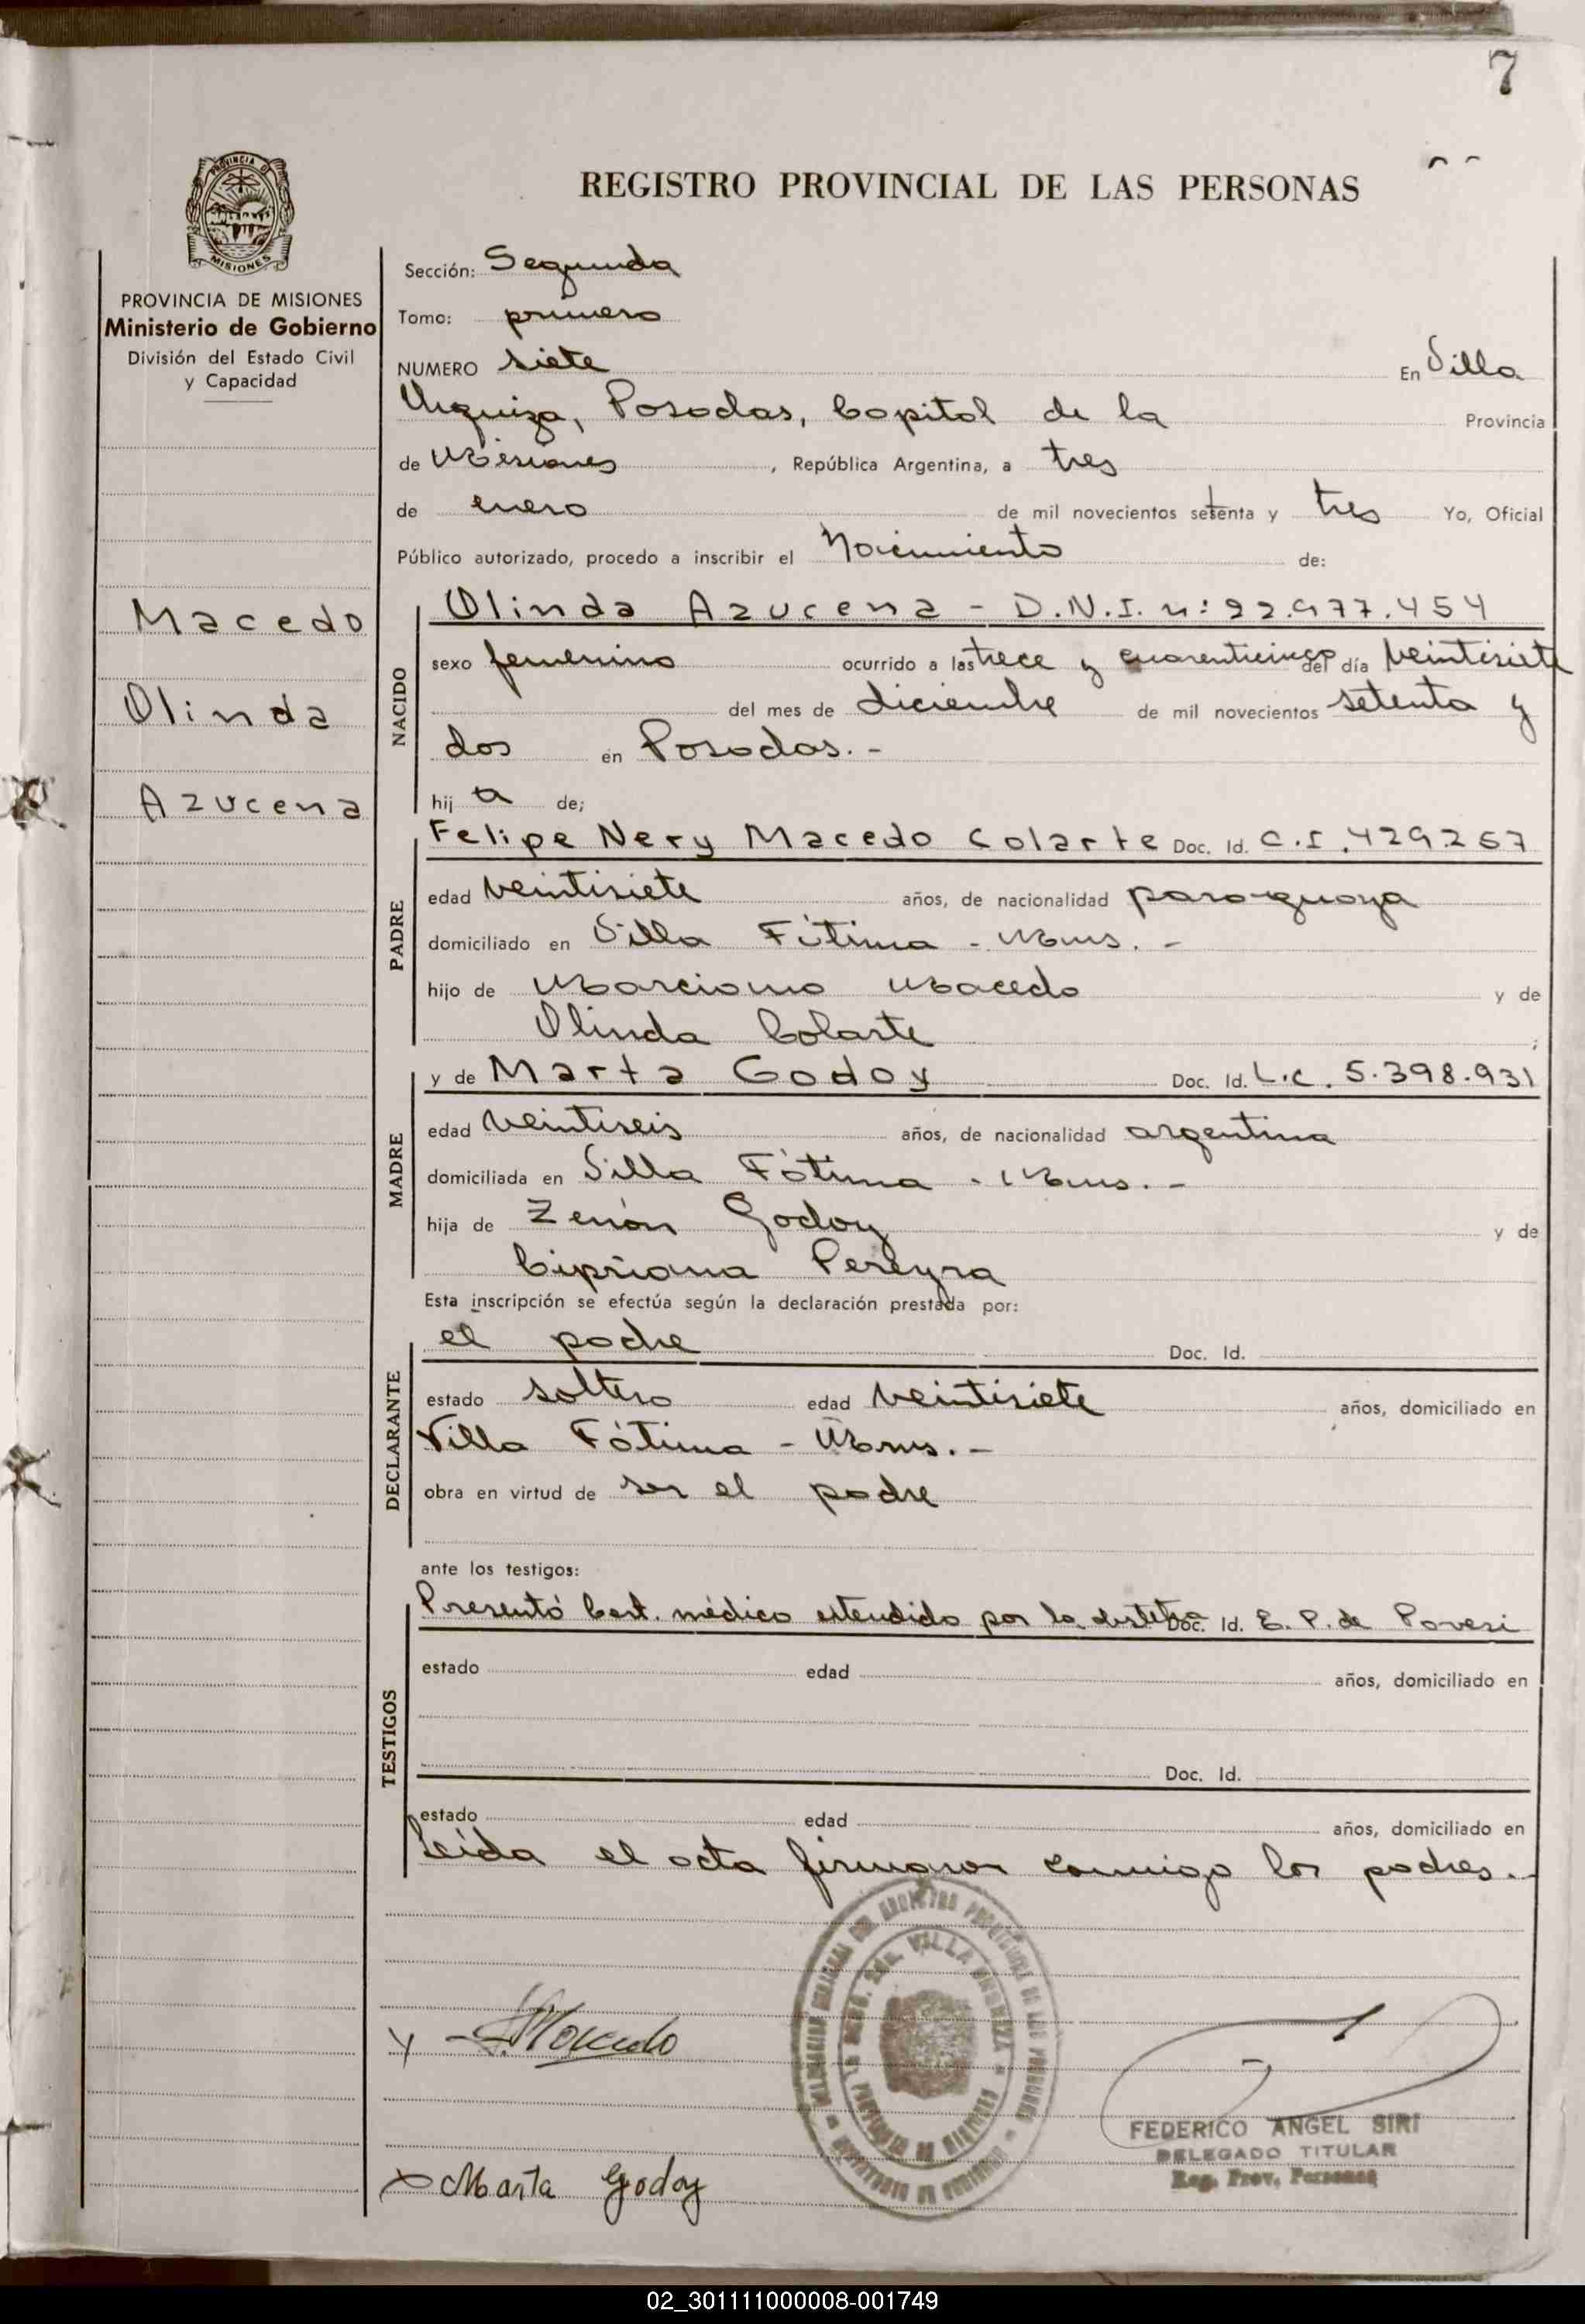 7
REGISTRO PROVINCIAL DE LAS PERSONAS
PROVINCIA DE
MISIONES
PROVINCIA DE MISIONES
Ministerio de Gobierno
División del Estado Civil
y Capacidad
Macedo
Olinda
Azucena
Sección: Segunda
Tomo: primero
NUMERO siete En Villa
Urquiza, Posadas, Capital de la Provincia
de Misiones, República Argentina, a tres
de enero de mil novecientos setenta y tres Yo, Oficial
Público autorizado, procedo a inscribir el Nacimiento de:
NACIDO
Olinda Azucena - D.N.I. n: 22.977.454
sexo femenino ocurrido a las trece y cuarenticinco del día veintisiete
del mes de diciembre de mil novecientos setenta y
dos en Posadas. -
hij a de;
PADRE
Felipe Nery Macedo Colarte Doc. Id. C.I. 429.257
edad veintisiete años, de nacionalidad paraguaya
domiciliado en Villa Fátima - Mnes. -
hijo de Marciano Macedo y de
Olinda Colarte ;
MADRE
y de Marta Godoy Doc. Id. L.C. 5.398.931
edad veintiseis años, de nacionalidad argentina
domiciliada en Villa Fátima - Mnes. -
hija de Zenón Godoy y de
Cipriana Pereyra
Esta inscripción se efectúa según la declaración prestada por:
DECLARANTE
el padre Doc. Id.
estado soltero edad veintisiete años, domiciliado en
Villa Fátima - Mnes. -
obra en virtud de ser el padre
ante los testigos:
TESTIGOS
Presentó Cert. médico extendido por la obstetra Doc. Id. E. P. de Povesi
estado edad años, domiciliado en
Doc. Id.
estado edad años, domiciliado en
Leída el acta firmaron conmigo los padres. -
Macedo
VILLA URQUIZA
PROVINCIA DE MISIONES
FEDERICO ANGEL SIRI
DELEGADO TITULAR
Reg. Prov. Personas
x Marta Godoy
02_301111000008-001749